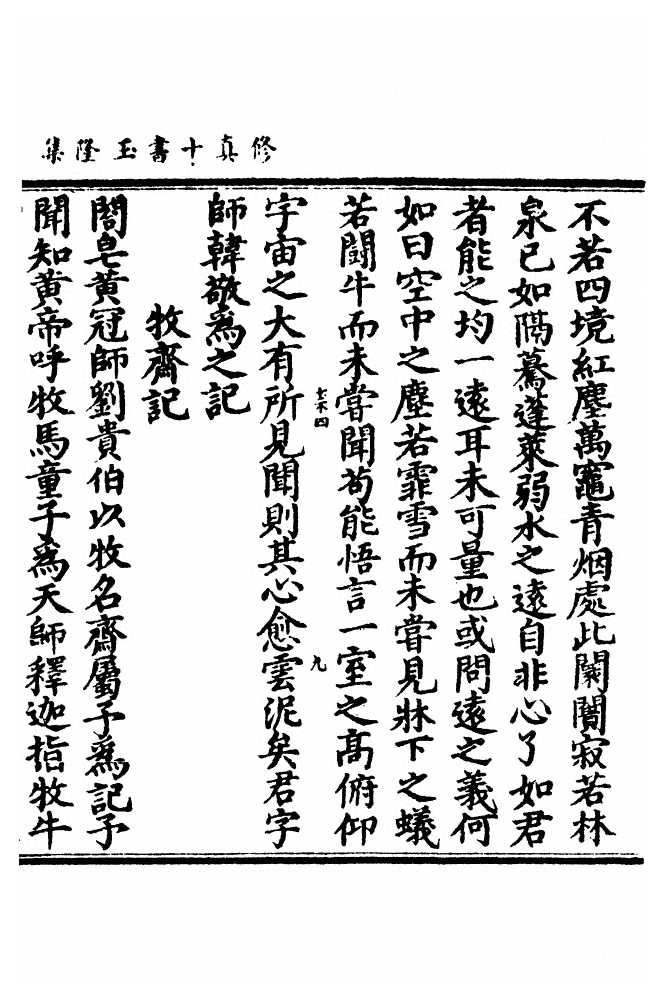 修真十書玉隆集
不若四境紅塵萬竈青烟處此闤闠寂若林
泉已如隔驀蓬萊弱水之遠自非心了如君
者能之均一遠耳未可量也或問遠之義何
如曰空中之塵若霏雪而未嘗見牀下之蟻
若鬪牛而未嘗聞苟能悟言一室之高俯仰
九
宇宙之大有所見聞則其心愈雲泥矣君字
師韓敬爲之記
牧齋記
閤皂黃冠師劉貴伯以牧名齋屬予爲記予
聞知黃帝呼牧馬童子爲天師釋迦指牧牛